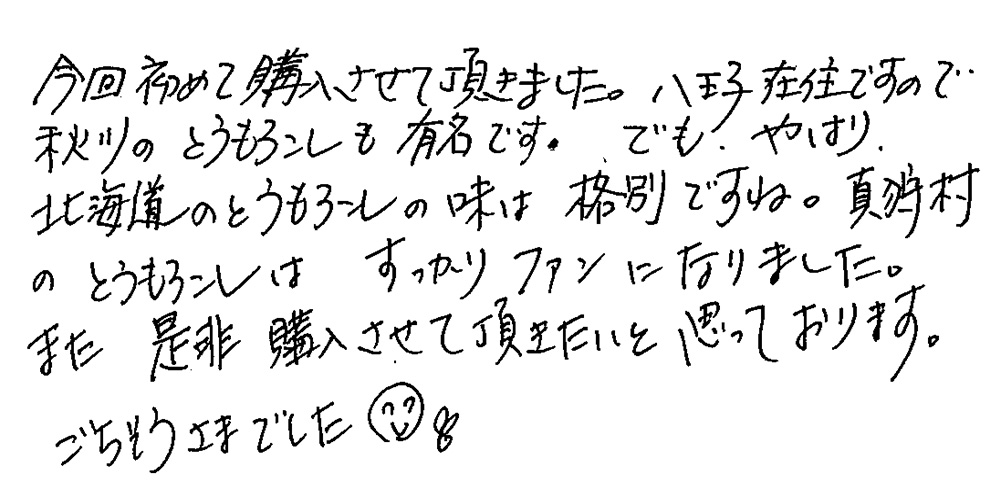 今回初めて購入させて頂きました。八王子在住ですので
秋川のとうもろこしも有名です。でも、やはり、
北海道のとうもろこしの味は格別ですね。真狩村
のとうもろこしはすっかりファンになりました。
また是非購入させて頂きたいと思っております。
ごちそうさまでした